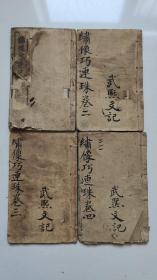 繡像巧連珠卷二
武熙文記
繡像巧連珠卷三
武熙文記
繡像巧連珠卷四
武熙文記